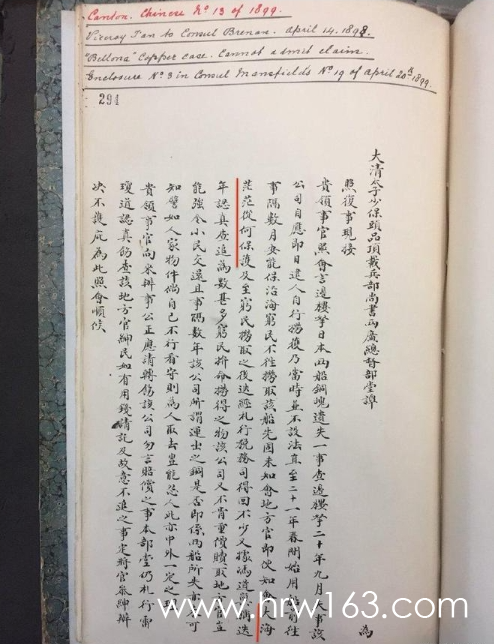 Canton. Chinese Nº 13 of 1899.
Viceroy Tan to Consul Brenan. April 14. 1898.
"Bellona" Copper case. Cannot admit claim.
Enclosure Nº 3 in Consul Mansfield's Nº 19 of April 20th 1899.
294
大清太子少保頭品頂戴兵部尚書兩廣總督部堂譚 為
照復事現接
貴領事官照會言邊樓拏日本兩船銅塊遺失一事查邊樓拏二十年九月失事該
公司自應即日遣人自行撈獲乃當時並不設法直至二十一年春間始用船前往
事隔數月安能保沿海窮民不往撈取該船先固未知會地方官即使知會大海
茫茫從何保護及至窮民撈取之後迭經札行稅務司得回不少又據馮道前後迭
年認真查追為數甚多窮民拚命撈得之物該公司又不肯重價贖取地方官豈
能強令小民交還且事隔數年該公司所謂運士之銅是否即係兩船所失亦不可
知譬如人家物件倘自己不行看守則為人取去豈能怨人此亦中外一定之理
貴領事官向來辦事公正應請轉飭該公司勿言賠償之事本部堂仍札行雷
瓊道認真飭查該地方官紳民如有用錢請託及故意不追之事定將官參紳辦
決不獲庇為此照會順候
www.hrw163.com